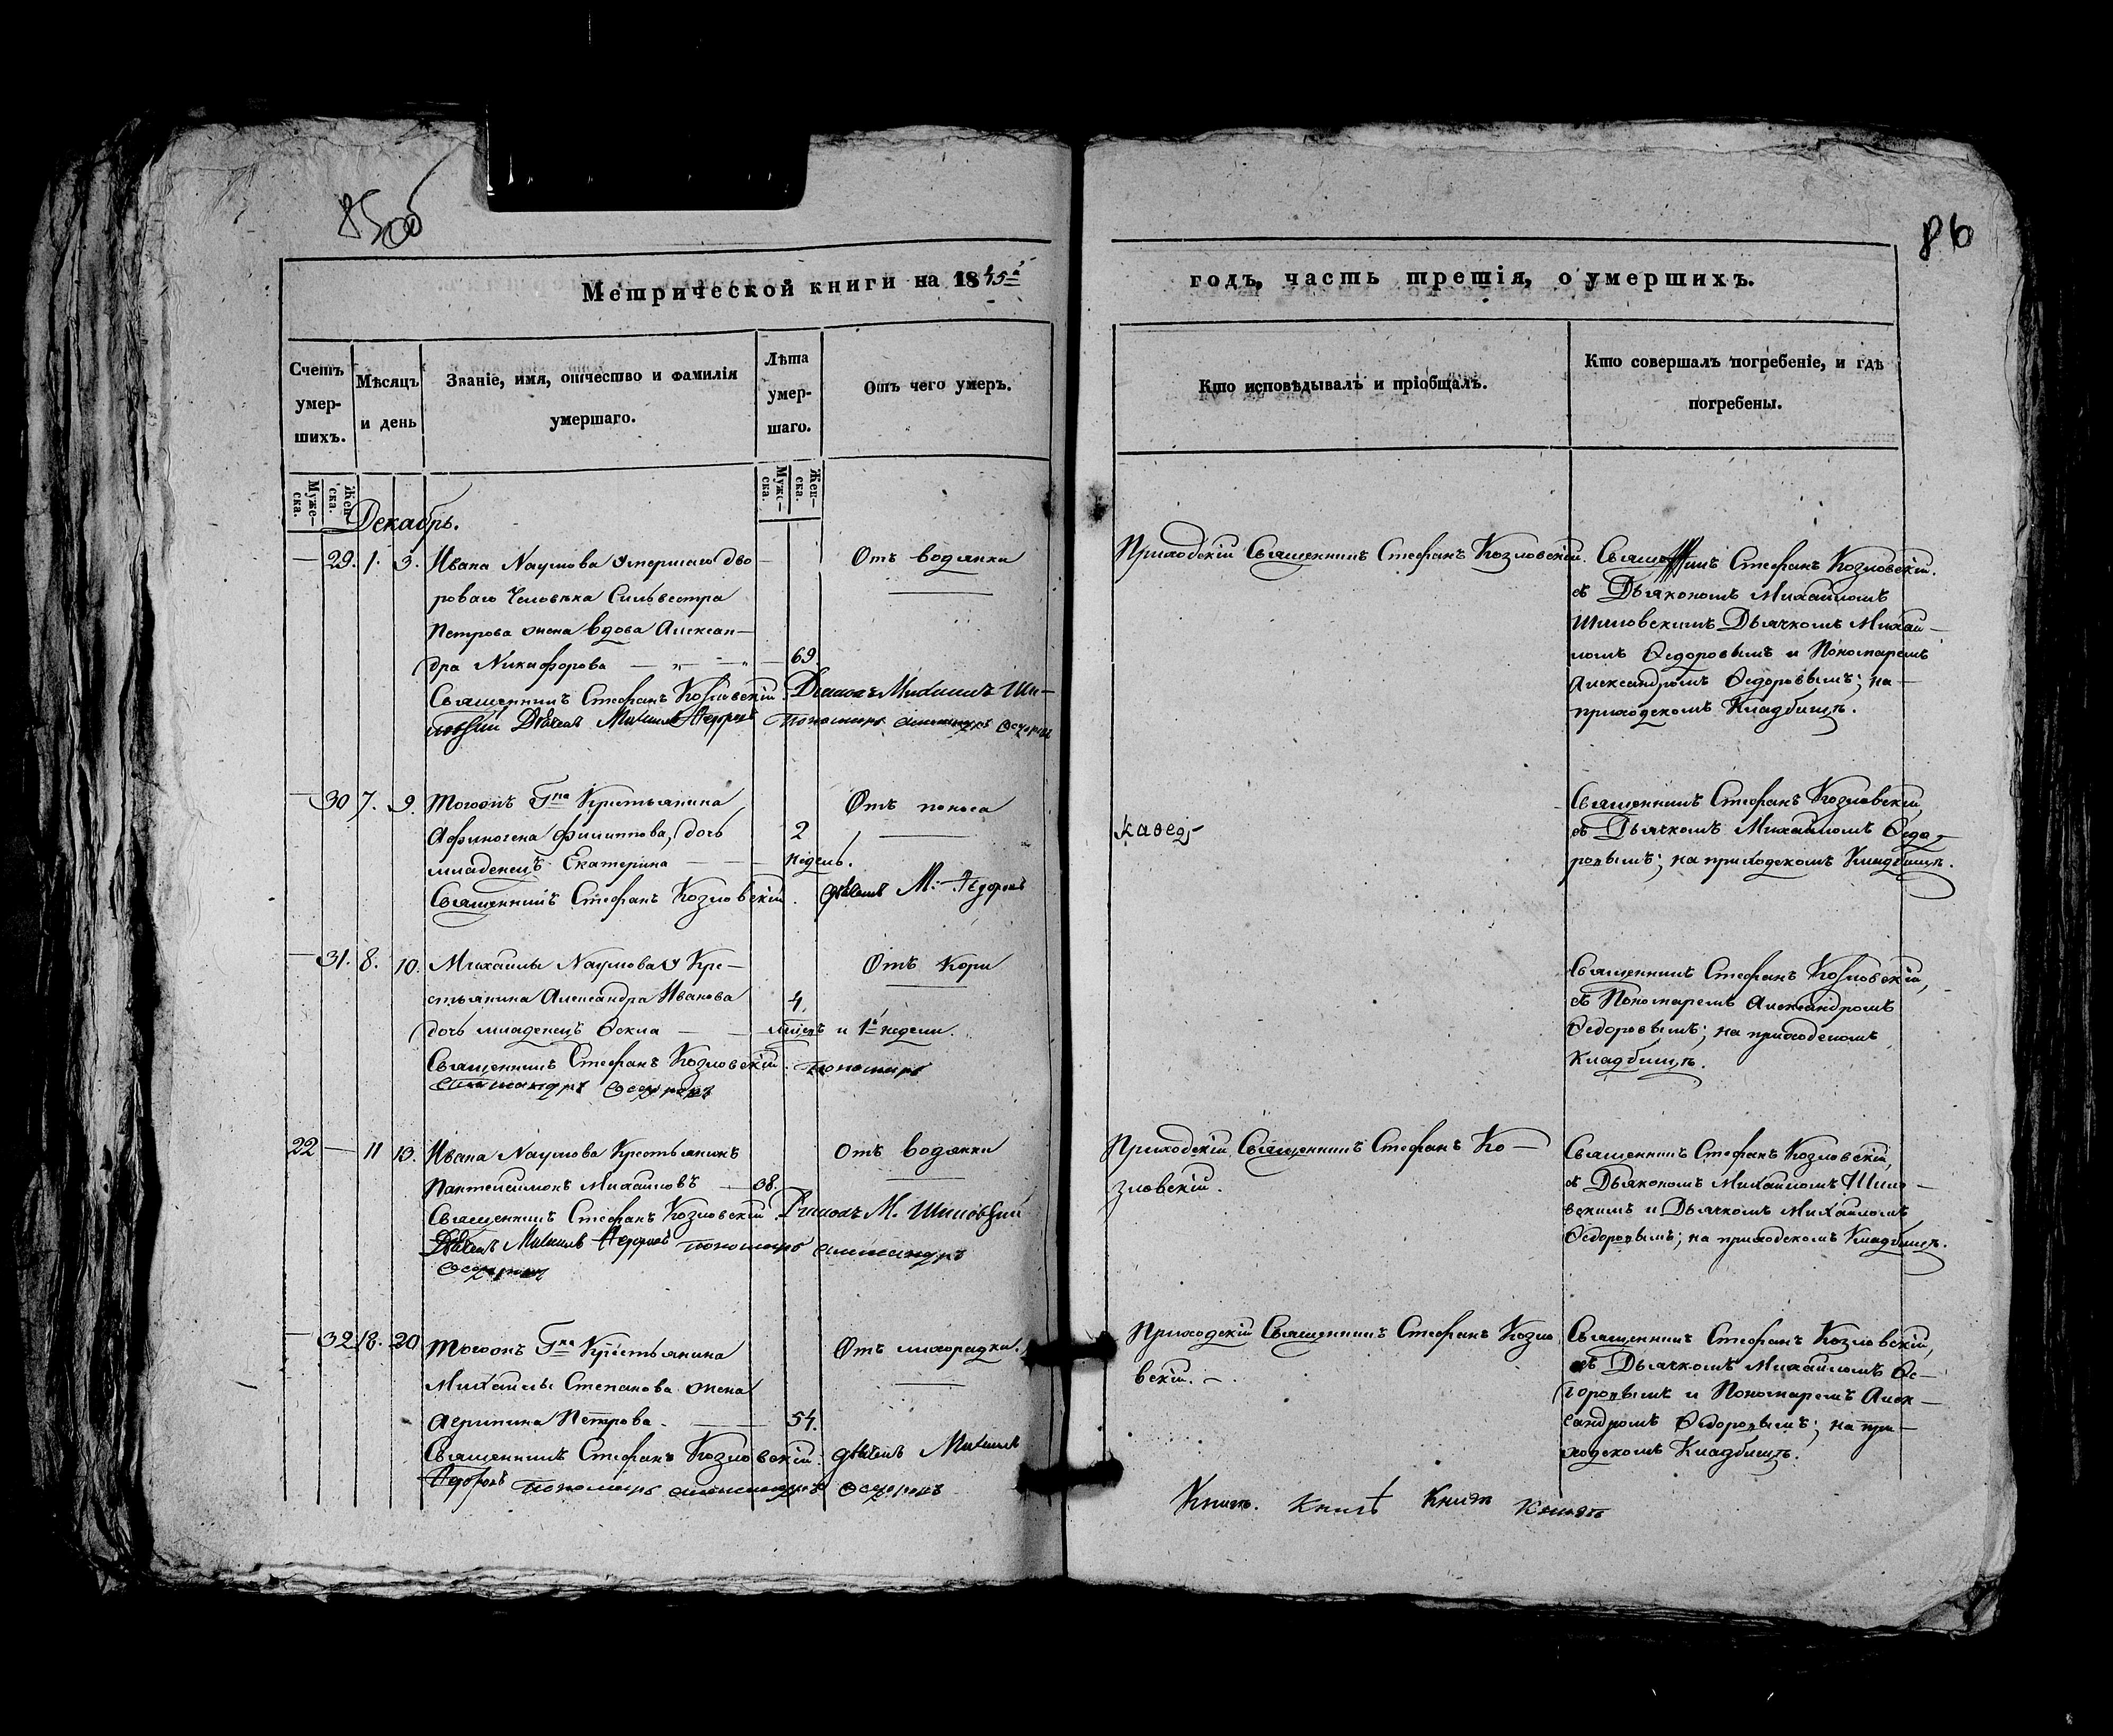 85об
86
Метрической книги на 1845й
годъ, часть третія, о умершихъ.
Счетъ умер-шихъ.
Мѣсяцъ и день
Званіе, имя, отчество и фамилія умершаго.
Лѣта умер-шаго.
Отъ чего умеръ.
Кто исповѣдывалъ и пріобщалъ.
Кто совершалъ погребеніе, и гдѣ погребены.
Муже-ска.
Жен-ска.
Муже-ска.
Жен-ска.
Декабрь.
— 29. 1. 3. Ивана Наумова умершаго дво
роваго человѣка Сильвестра
Петрова жена вдова Алексан—
дра Никифорова — 69.
Отъ водянки
Священникъ Стефанъ Козловскій. Діаконъ Михаилъ Ши—
ловскій Дьячекъ Михаилъ Федоровъ Пономарь Александръ Федоровъ
Приходскій Священникъ Стефанъ Козловскій.
Священникъ Стефанъ Козловскій.
съ Дьякономъ Михаиломъ
Шиловскимъ Дьячкомъ Михаи—
ломъ Ѳедоровымъ и Пономаремъ
Александромъ Ѳедоровымъ; на—
приходскомъ Кладбищѣ.
— 30 7. 9. Тогожъ Гна Крестьянина
Афиногена Филиппова, дочь
младенецъ Екатерина — 2
недель.
Отъ поноса
Священникъ Стефанъ Козловскій. Дьячекъ М: Федоровъ
Священникъ Стефанъ Козловскій,
съ Дьячкомъ Михаиломъ Ѳедо—
ровымъ; на приходскомъ Кладбищѣ.
— 31. 8. 10. Михаилы Наумова Кре—
стьянина Александра Иванова
дочь младенецъ Ѳекла — 4
месец и 1а недели.
Отъ Кори
Священникъ Стефанъ Козловскій. Пономарь
Александръ Федоровъ
Священникъ Стефанъ Козловскій,
съ Пономаремъ Александромъ
Ѳедоровымъ; на приходскомъ
Кладбищѣ.
22 — 11 13. Ивана Наумова Крестьянинъ
Пантелиимонъ Михаиловъ — 38.
Отъ водянки
Священникъ Стефанъ Козловскій. Діаконъ М. Шиловскій
Дьячекъ Михаилъ Федоровъ Пономарь Александръ
Федоровъ
Приходскій Священникъ Стефанъ Ко—
зловскій.
Священникъ Стефанъ Козловскій,
съ Дьякономъ Михаиломъ Шило—
вскимъ и Дьячкомъ Михаиломъ
Ѳедоровымъ; на приходскомъ Кладбищѣ.
— 32 18. 20 Тогожъ Гна Крестьянина
Михаилы Степанова жена
Агрипина Петрова. — 54.
Отъ лихорадки.
Священникъ Стефанъ Козловскій. Дьячекъ Михаилъ
Федоровъ Пономарь Александръ Федоровъ
Приходскій Священникъ Стефанъ Козло
вскій. —
Священникъ Стефанъ Козловскій,
съ Дьячкомъ Михаиломъ Ѳе—
доровымъ и Пономаремъ Алек—
сандромъ Ѳедоровымъ; на при—
ходскомъ Кладбищѣ.